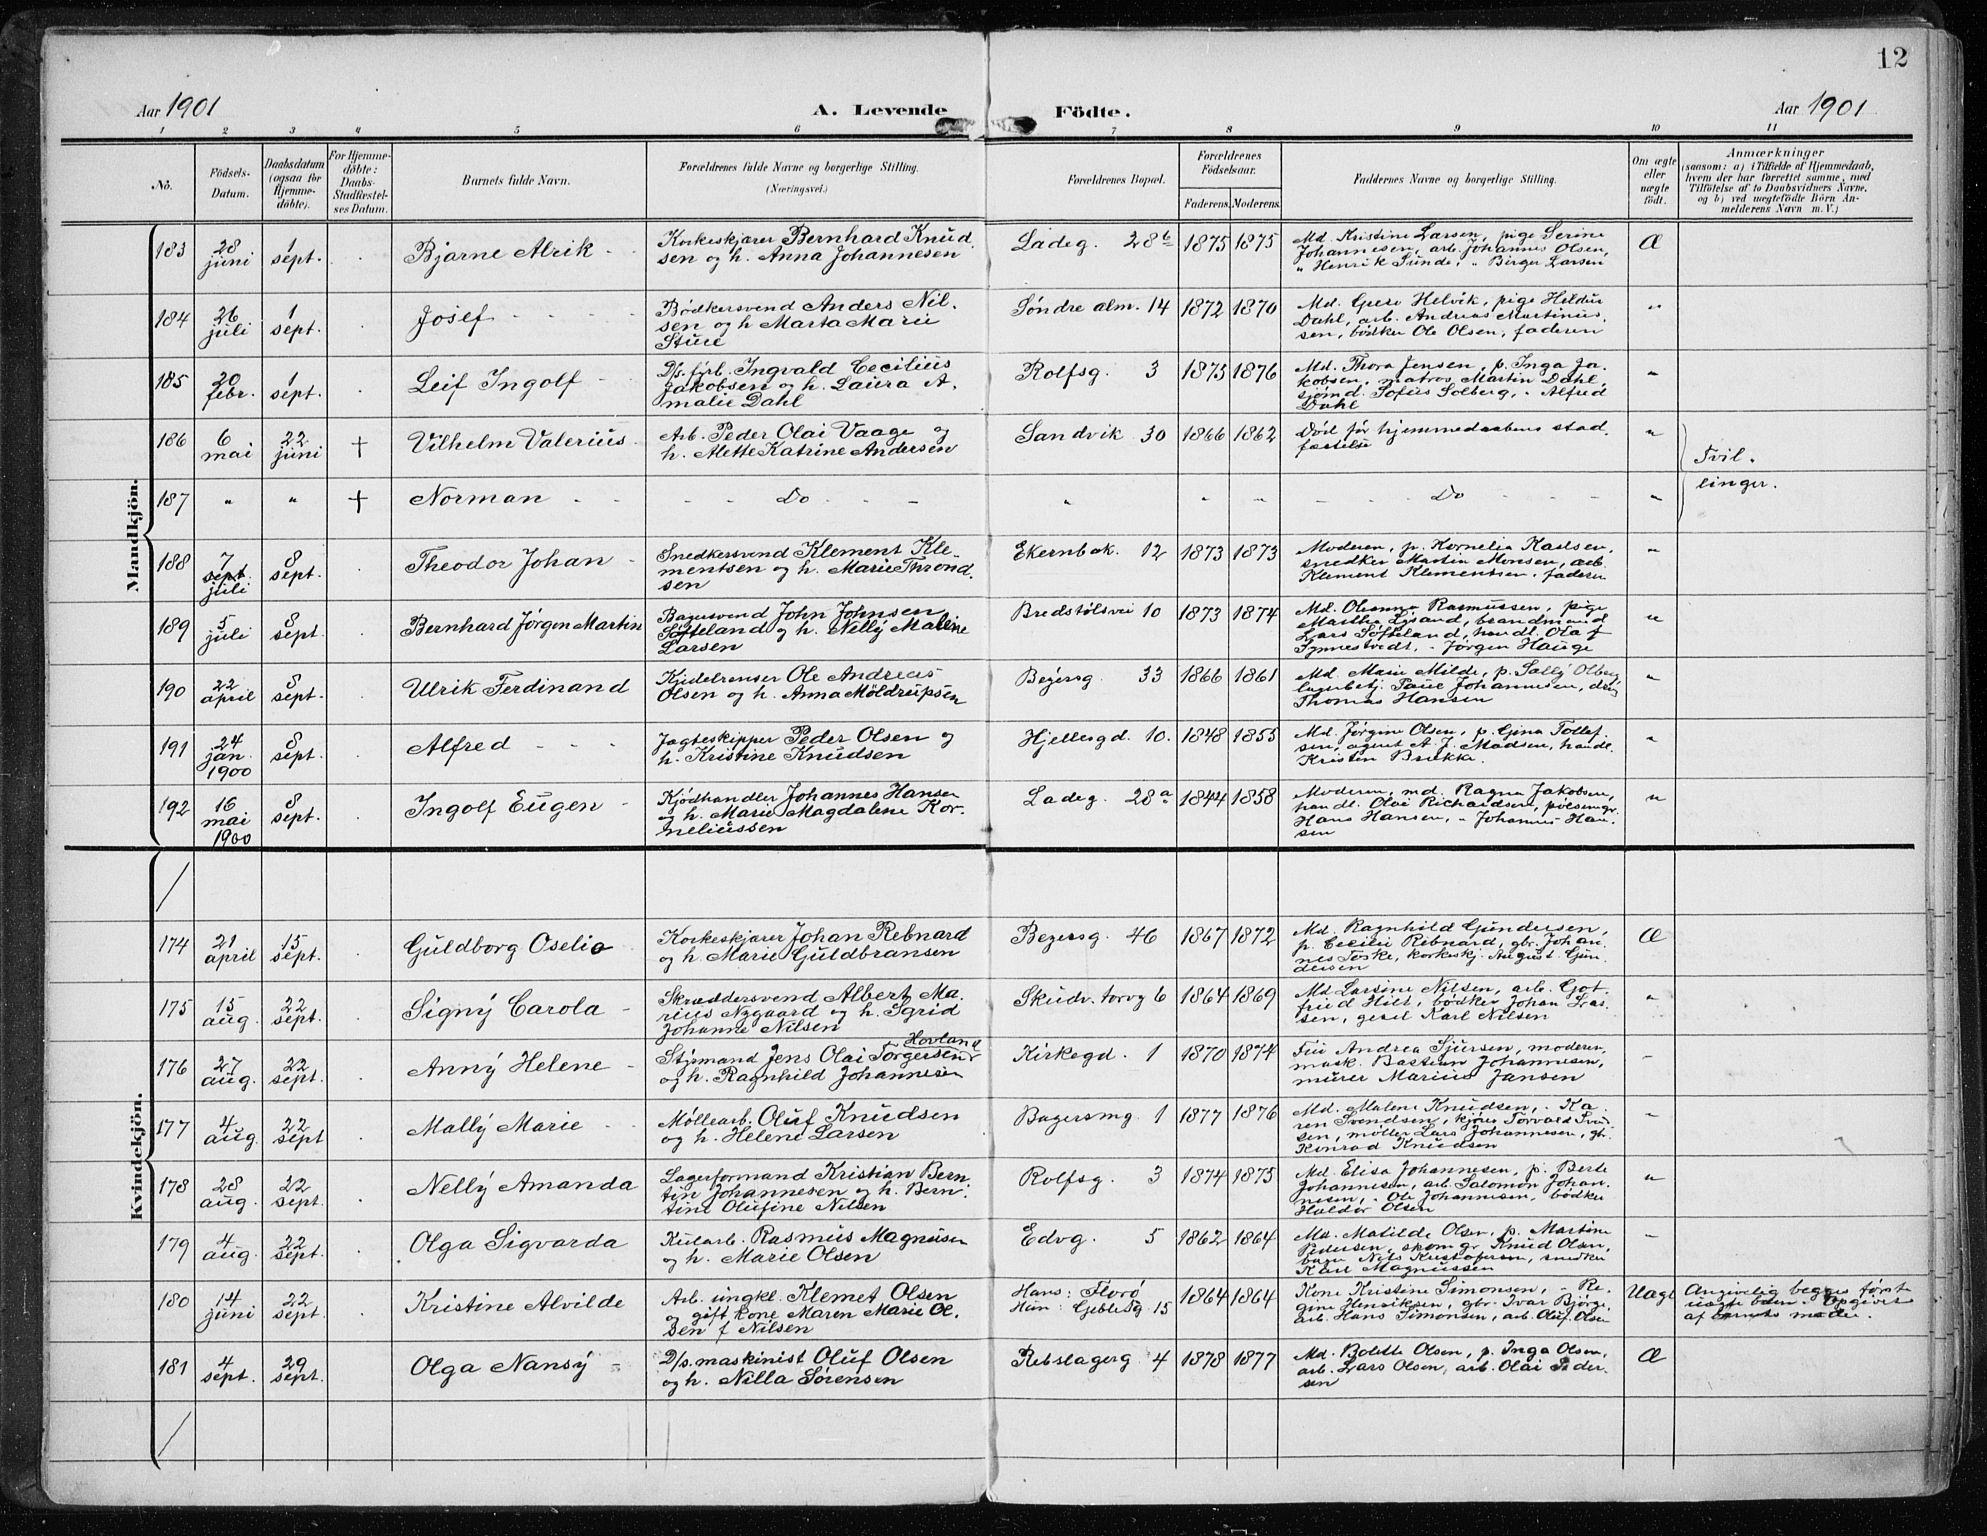 12
Aar 1901
A. Levende Födte.
Aar 1901
1 2 3 4 5 6 7 8 9 10 11
No.
Födsels-Datum.
Daabsdatum (ogsaa for Hjemme-döbte).
For Hjemme-döbte: Daabs-Stadfæstel-ses Datum.
Barnets fulde Navn.
Forældrenes fulde Navne og borgerlige Stilling.
(Næringsvei.)
Forældrenes Bopæl.
Forældrenes Födselsaar.
Faderens. Moderens.
Faddernes Navne og borgerlige Stilling.
Om ægte eller uægte födt.
Anmærkninger
(saasom: a) i Tilfælde af Hjemmedaab,
hvem der har forrettet samme, med
Tilföielse af to Daabsvidners Navne,
og b) ved uægtefödte Börn An-
melderens Navn m. V.)
Mandkjön.
183 28 juni 1 sept. Bjarne Alrik
Korkeskjærer Bernhard Knud
sen og h. Anna Johannesen
Ladeg. 28b 1875 1875
Md. Kristine Larsen, pige Serine
Johannesen, arb. Johannes Olsen,
" Henrik Sunde, " Birger Larsen
Æ
184 26 juli 1 sept. Josef
Bødkersvend Anders Nil-
sen og h Marta Marie
Sture
Søndre alm. 14 1872 1870
Md. Grese Helvik, pige Heldur
Dahl, arb. Andreas Martinius.
sen, bødker Ole Olsen, faderen
"
185 20 febr. 1 sept. Leif Ingolf
D/s. fyrb. Ingvald Cecilius
Jakobsen og h. Laura A.
malie Dahl
Rolfsg. 3 1875 1876
Md. Thora Jensen, p. Inga Ja
kobsen, matros Martin Dahl,
sjømd. Sofus Solberg, " Alfred
Dahl
"
186 6 mai 22 juni † Vilhelm Valerius
Arb. Peder Olai Vaage og
h. Alette Katrine Andersen
Sandvik 30 1866 1862
Død før hjemmedaabens stad.
fæstelse
"
Tvil.
linger.
187 " " † Norman
Do " " " Do "
188 7 sept. juli 8 sept. Theodor Johan
Snedkersvend Klement Kle-
mentsen og h. Marie Thrond
sen
Ekernbak. 12 1873 1873
Moderen, p. Kornelia Karlsen,
snedker Martin Monsen, arb.
Klement Klementsen, faderen
"
189 5 juli 8 sept. Bernhard Jørgen Martin
Bagesvend John Johnsen
Søfteland og h. Nelly Maline
Larsen
Bredstølsvei 10 1873 1874
Md. Oleanna Rasmussen, pige
Martha Lysand, brandmand
Lars Søfteland, handl. Olaf
Synnestvedt, " Jørgen Hauge
"
190 22 april 8 sept. Ulrik Ferdinand
Kjedelrenser Ole Andreas
Olsen og h. Anna Moldrupsen
Bøiersg. 33 1866 1861
Md Marie Milde, p. Sally Olberg
lagerbetj. Paul Johannesen, drej
Thomas Hansen
"
191 24 jan. 1900 8 sept. Alfred
Jagteskipper Peder Olsen og
h. Kristine Knudsen
Hjellesgd. 10. 1848 1855
Md. Jørgine Olsen, p. Gina Tollef
sen, agent A. J. Madsen, handl.
Kristen Brekke.
"
192 16 mai 1900 8 sept. Ingolf Eugen
Kjødhandler Johannes Hansen
og h. Marie Magdalene Kor-
neliussen
Ladeg. 28a 1844 1858
Moderen, md. Ragna Jakobsen,
handl. Olai Richardsen, pølsemgr.
Hans Hansen, " Johannes Han
sen
"
Kvindekjön.
174 21 april 15 sept. Guldborg Oselie
Korkeskjærer Johan Rebnard
og h. Marie Guldbransen
Bøiersg. 46 1867 1872
Md. Ragnhild Gundersen,
p. Cecilie Rebnard, gbr. Johan
nes Toske, korkeskj. August Gun
dersen
Æ
175 15 aug. 22 sept. Signy Carola
Skræddersvend Albert Ma.
rius Nygaard og h. Igrid
Johanne Nilsen
Skudv. torvg 6 1864 1869
Md Larsine Nilsen, arb. Got
fried Hilt, bødker Johan Lar
sen, gesel Karl Nilsen
"
176 27 aug. 22 sept. Anny Helene
Hovland
Styrmand Jens Olai Torgersen
og h. Ragnhild Johannesen
Kirkegd. 1 1870 1874
Fru Andrea Sjursen, moderen,
mask. Bastian Johannesen,
murer Marius Jansen
"
177 4 aug. 22 sept Mally Marie
Møllearb. Oluf Knudsen
og h. Helene Larsen
Bagersmg. 1 1877 1876
Md. Malene Knudsen, " Ka
ren Svendsen, kjører Torvald Svend
sen, møller Lars Johannesen, gbr.
Konrad Knudsen
"
178 28 aug. 22 sept. Nelly Amanda
Lagerformand Kristian Bern.
tin Johannesen og h. Bern.
tine Olufine Nilsen
Rolfsg. 3 1874 1875
Md. Elisa Johannesen, p. Berte
Johannesen, arb. Salomon Johan.
nesen, " Ole Johannesen, bødker
Haldor Olsen
"
179 4 aug. 22 sept. Olga Sigvarda
Kularb. Rasmus Magnusen
og h. Marie Olsen
Edvg. 5 1862 1864
Md. Matilde Olsen, p. Martine
Pedersen, skomgr. Knud Olsen,
bager Nils Kristofersen, snedker
Karl Magnussen
"
180 14 juni 22 sept. Kristine Alvilde
Arb. ungkl. Klemet Olsen
og gift kone Maren Marie Ol.
sen f Nilsen
Hans: Florø
Hun: Gjeblesg 15
1864 1864
Kone Kristine Simonsen, " Re
gine Henriksen, gbr. Ivar Bjørge,
arb. Hans Simonsen, arb. Oluf Olsen
Uægt
Angivelig begges første
uægte barn. Opgivet
af barnets moder.
181 4 sept. 29 sept. Olga Nansy
D/s. maskinist Oluf Olsen
og h. Nilla Sørensen
Rebslagerg 4 1878 1877
Md. Bolette Olsen, p. Inga Olsen,
arb. Lars Olsen, arb. Olai Peder
sen
Æ